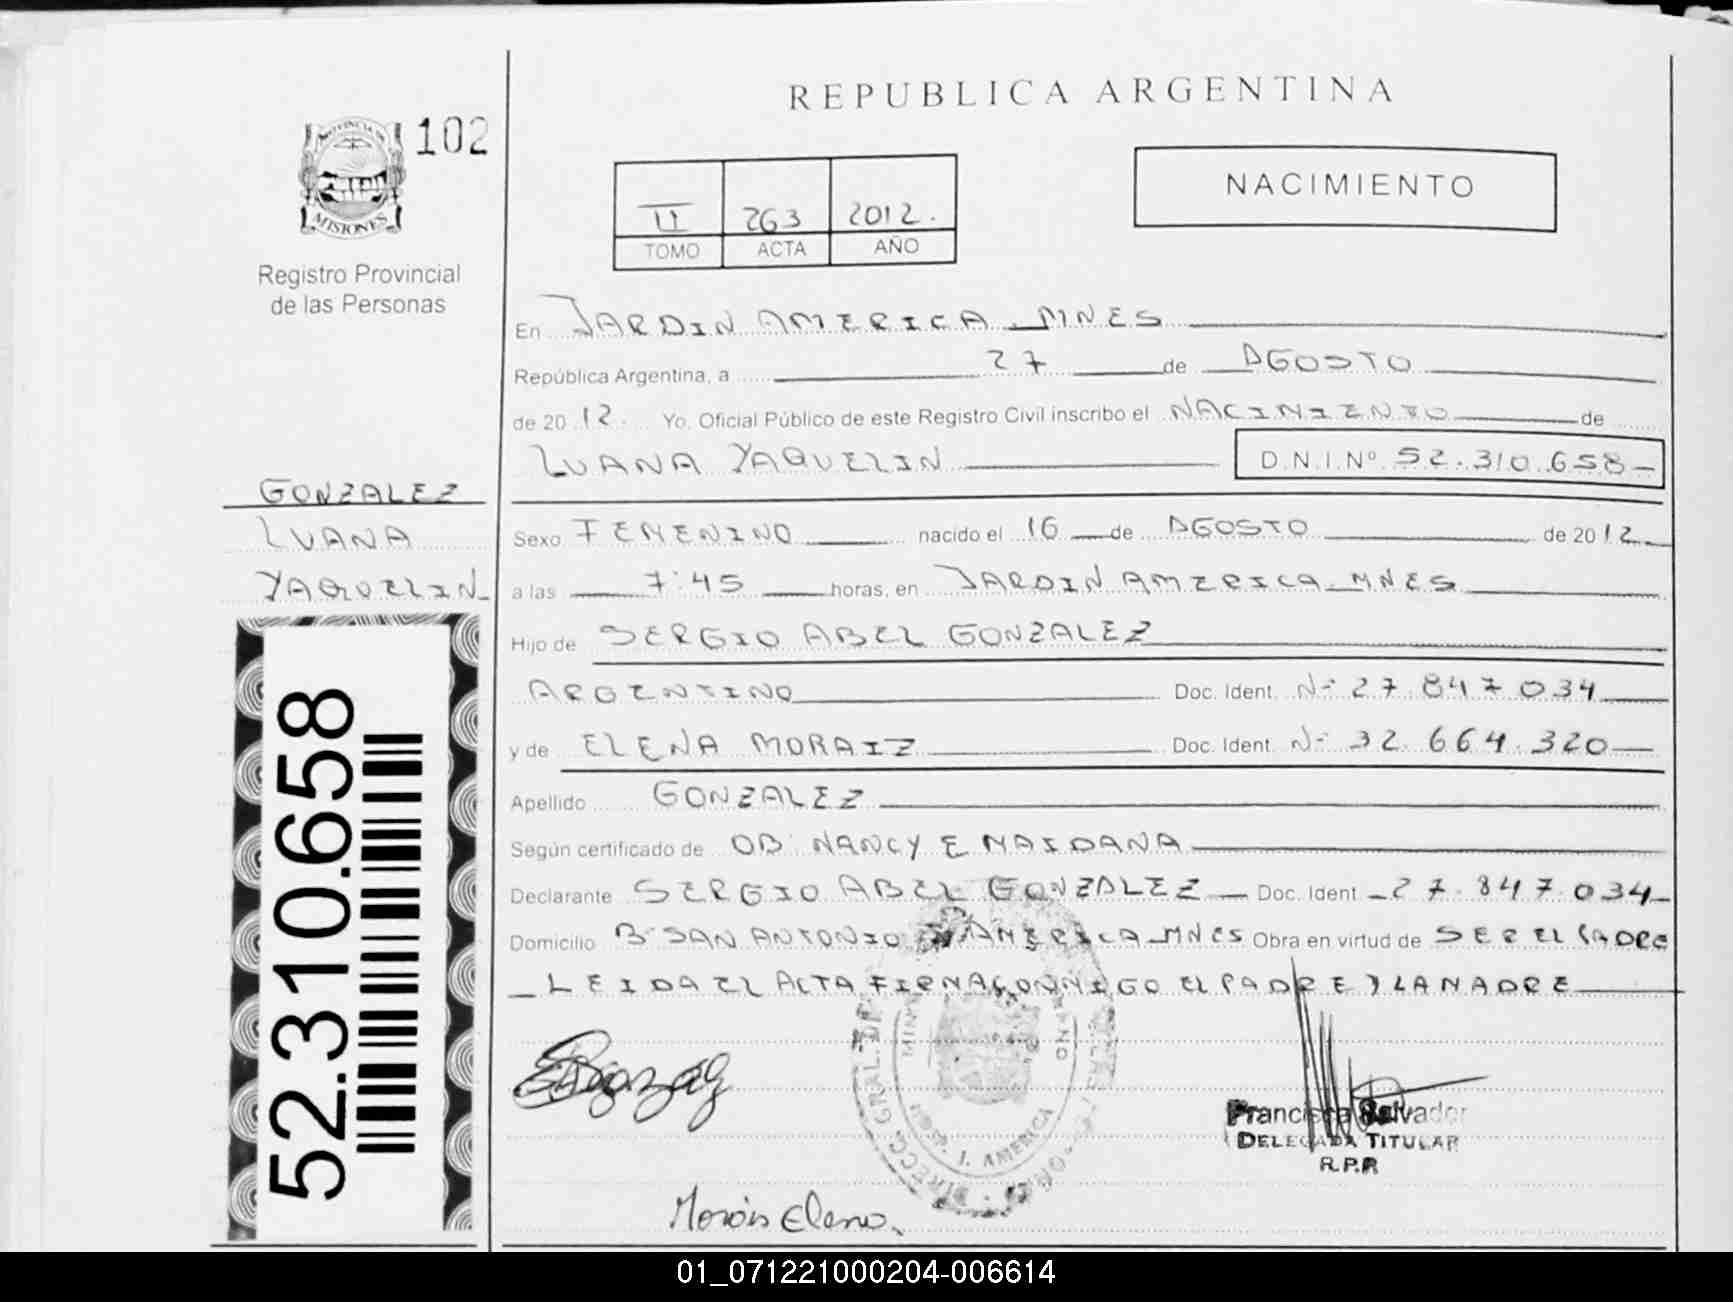 REPUBLICA ARGENTINA
PROVINCIA DE
MISIONES
102
Registro Provincial
de las Personas
NACIMIENTO
II 263 2012.
TOMO ACTA AÑO
En JARDIN AMERICA _ MNES
República Argentina, a 27 de AGOSTO
de 2012. Yo, Oficial Público de este Registro Civil inscribo el NACIMIENTO de
LUANA YAQUELIN D.N.I.Nº 52.310.658-
GONZALEZ
LUANA
YAQUELIN
Sexo FEMENINO nacido el 16 de AGOSTO de 2012
a las 7:45 horas, en JARDIN AMERICA _ MNES
Hijo de SERGIO ABEL GONZALEZ
ARGENTINO Doc. Ident. Nº 27.847.034
y de ELENA MORAIZ Doc. Ident. Nº 32.664.320
Apellido GONZALEZ
Según certificado de OB. NANCY E MAIDANA
Declarante SERGIO ABEL GONZALEZ Doc. Ident. 27.847.034
Domicilio Bº SAN ANTONIO AMERICA _ MNES Obra en virtud de SER EL PADRE
LEIDA EL ACTA FIRMA CONMIGO EL PADRE Y LA MADRE
52.310.658
J. AMERICA
Francisca Salvador
DELEGADA TITULAR
R.P.P.
Morais Elena
01_071221000204-006614